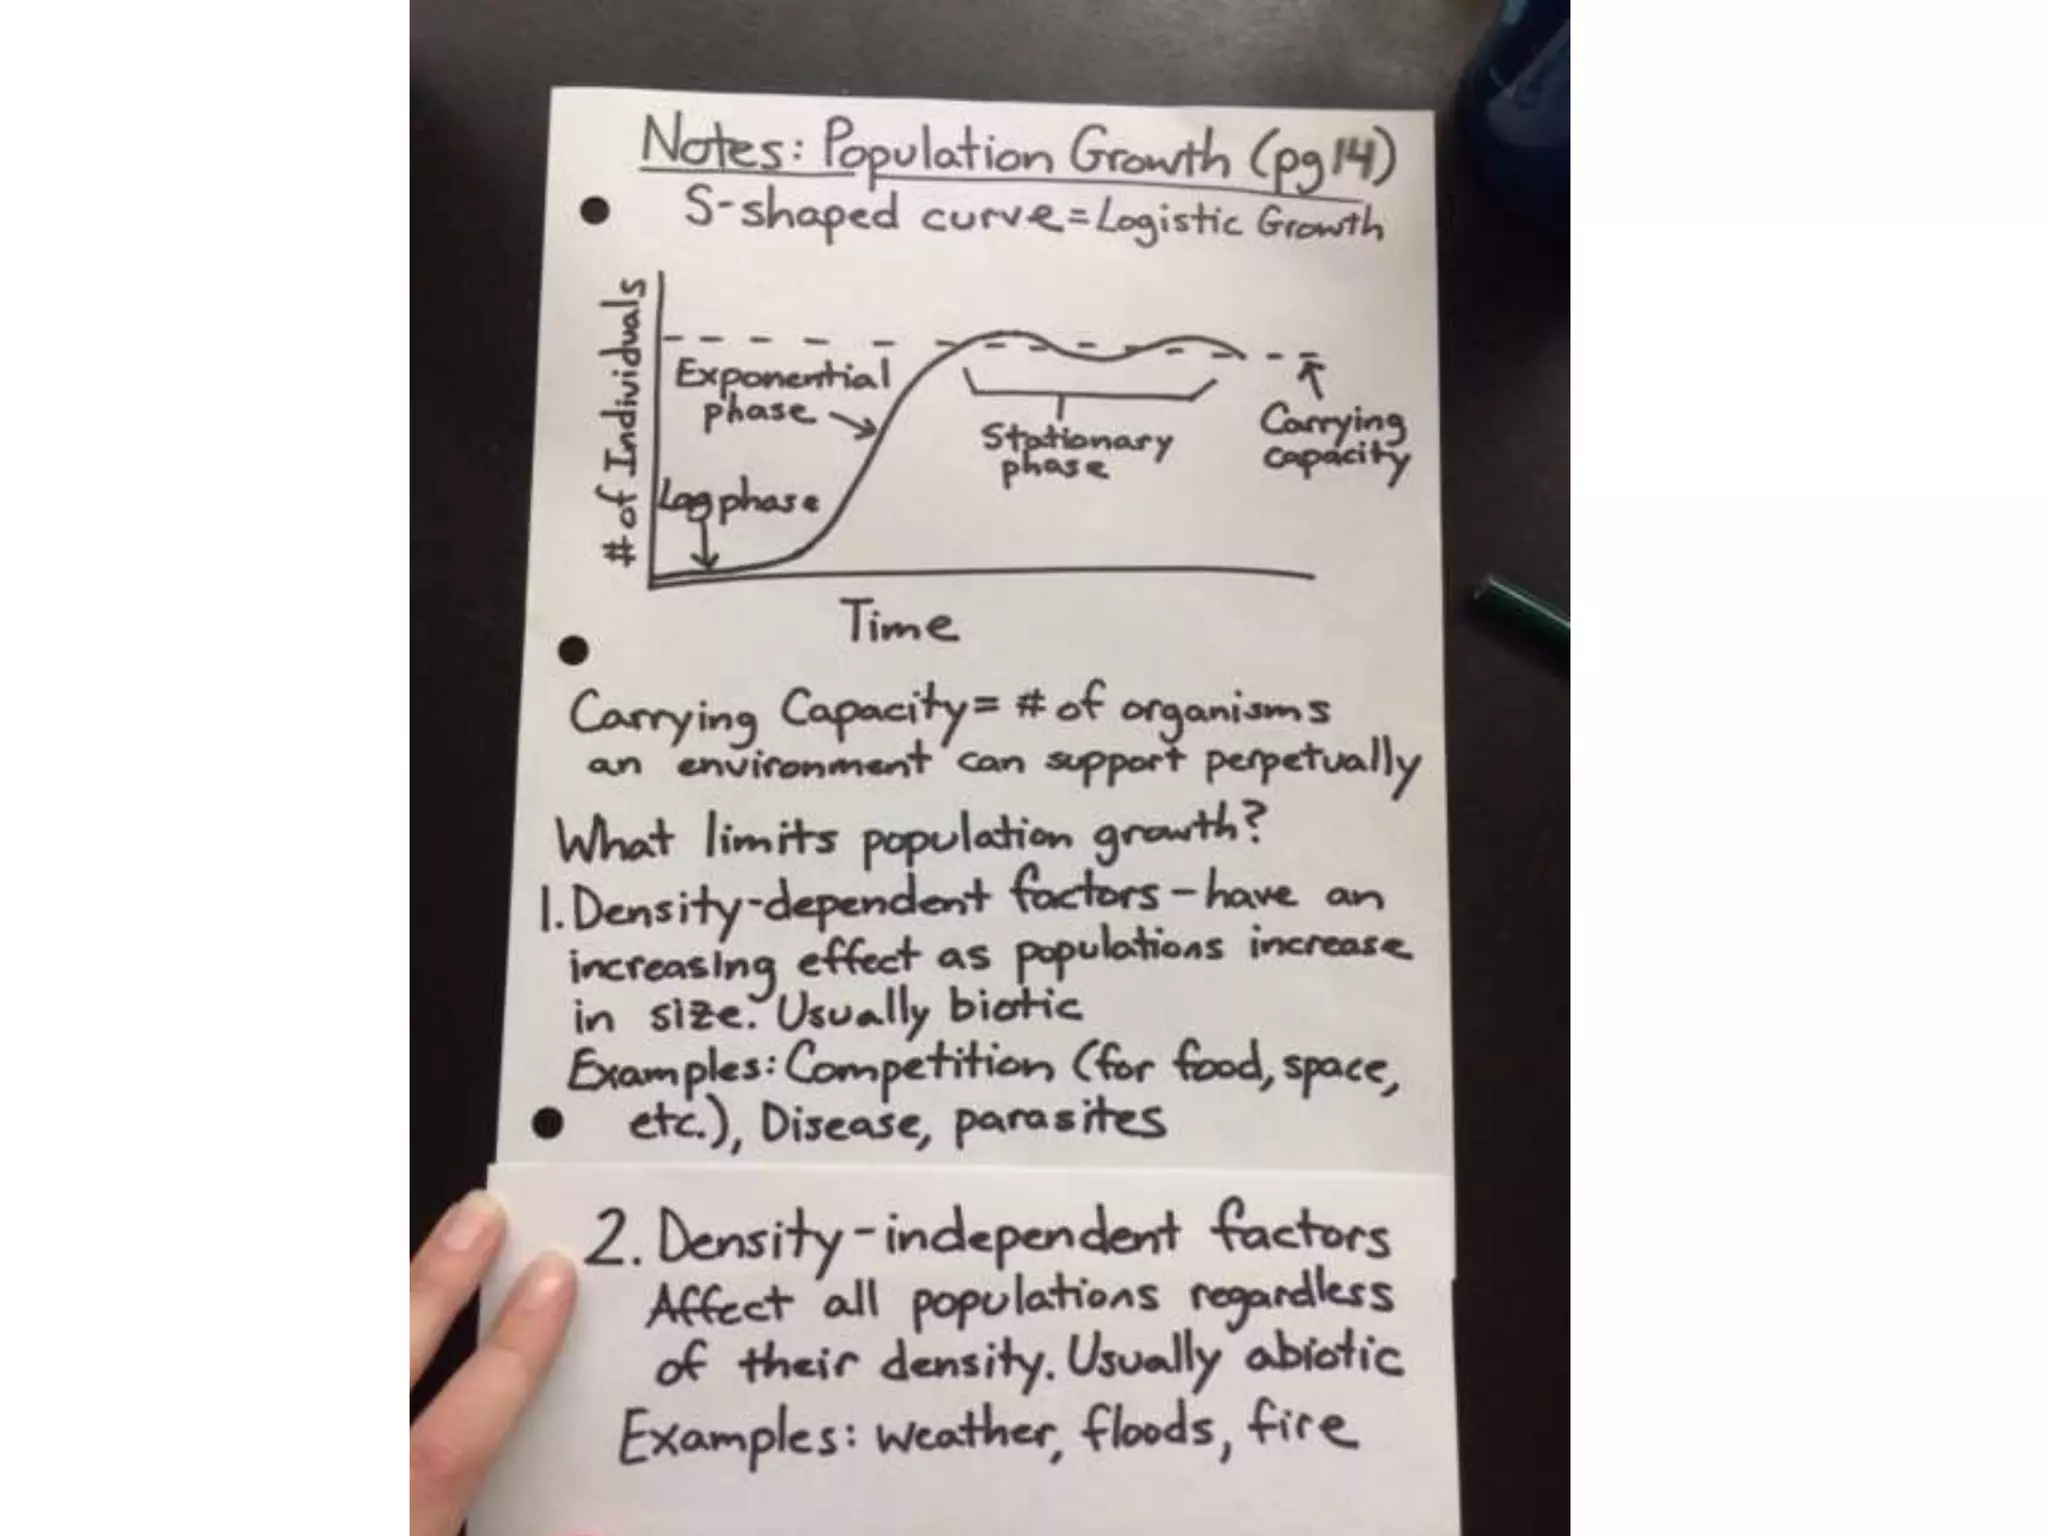 Notes: Population Growth (pg 14)
S-shaped curve = Logistic Growth
# of Individuals
Exponential
phase
Stationary
phase
Carrying
capacity
Lag phase
Time
Carrying Capacity = # of organisms
an environment can support perpetually
What limits population growth?
1. Density-dependent factors - have an
increasing effect as populations increase
in size. Usually biotic
Examples: Competition (for food, space,
etc.), Disease, parasites
2. Density-independent factors
Affect all populations regardless
of their density. Usually abiotic
Examples: weather, floods, fire